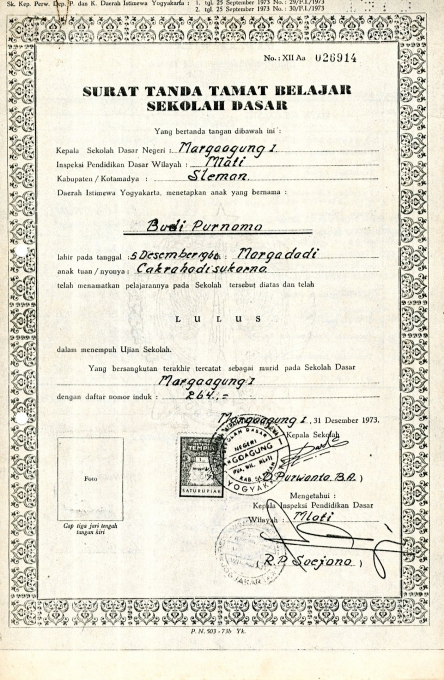 Sk. Kep. Perw. Dep. P. dan K. Daerah Istimewa Yogyakarta : 1. tgl. 25 September 1973 No. : 29/P.I./1973
2. tgl. 25 September 1973 No. : 30/P.I./1973
No.: XII Aa 026914
SURAT TANDA TAMAT BELAJAR
SEKOLAH DASAR
Yang bertanda tangan dibawah ini :
Kepala Sekolah Dasar Negeri : Margoagung I
Inspeksi Pendidikan Dasar Wilayah : Mlati
Kabupaten / Kotamadya : Sleman
Daerah Istimewa Yogyakarta, menetapkan anak yang bernama :
Budi Purnomo
lahir pada tanggal 5 Desember di : Margodadi
anak tuan / nyonya : Cakrahadisukarno
telah menamatkan pelajarannya pada Sekolah tersebut diatas dan telah
LULUS
dalam menempuh Ujian Sekolah.
Yang bersangkutan terakhir tercatat sebagai murid pada Sekolah Dasar
Margoagung I
dengan daftar nomor induk : 264.=
Margoagung I, 31 Desember 1973.
Kepala Sekolah
NEGERI
MARGOAGUNG
YOGYAKARTA
SATU RUPIAH
( Purwanto B.A. )
Foto
Cap tiga jari tengah
tangan kiri
Mengetahui :
Kepala Inspeksi Pendidikan Dasar
Wilayah : Mlati
( R.P. Soejono )
P. N. 503 - 73b Yk.